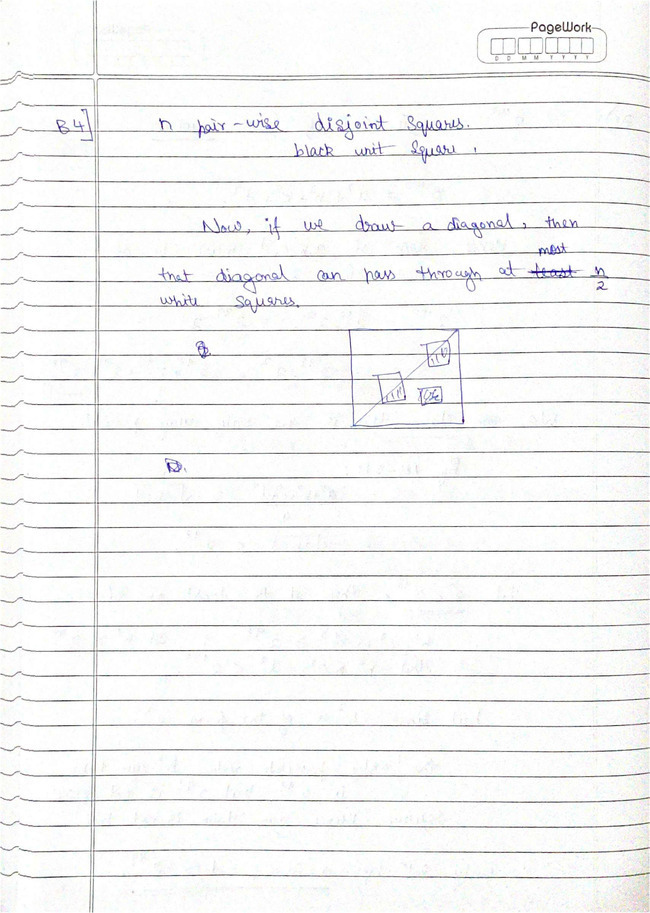 PageWork
D D M M Y Y Y Y
B4]
n pair-wise disjoint squares.
black unit square,
Now, if we draw a diagonal, then
that diagonal can pass through at most n/2
white squares.